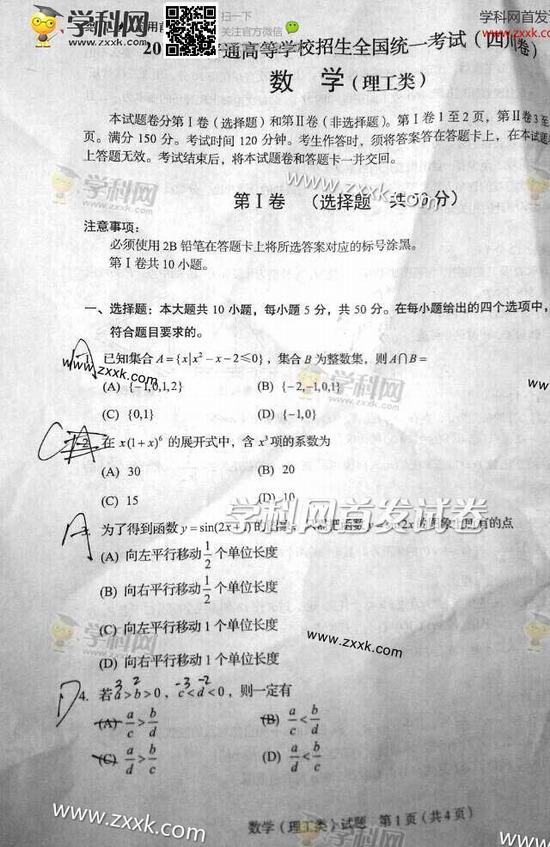 扫一下
关注官方微信
学科网首发
学科网
www.zxxk.com
普通高等学校招生全国统一考试（四川卷）
数 学（理工类）
本试题卷分第Ⅰ卷（选择题）和第Ⅱ卷（非选择题）。第Ⅰ卷 1 至 2 页，第Ⅱ卷 3 至
页。满分 150 分。考试时间 120 分钟。考生作答时，须将答案答在答题卡上，在本试
上答题无效。考试结束后，将本试题卷和答题卡一并交回。
学科网
www.zxxk.com
第Ⅰ卷 （选择题 共 分）
注意事项：
必须使用 2B 铅笔在答题卡上将所选答案对应的标号涂黑。
第Ⅰ卷共 10 小题。
一、选择题：本大题共 10 小题，每小题 5 分，共 50 分。在每小题给出的四个选项中，
符合题目要求的。
A 1. 已知集合 A={x|x²-x-2≤0}，集合 B 为整数集，则 A∩B=
www.zxxk.com
(A) {-1,0,1,2} (B) {-2,-1,0,1}
学科网
(C) {0,1} (D) {-1,0}
C 2. 在 x(1+x)⁶ 的展开式中，含 x³ 项的系数为
(A) 30 (B) 20
(C) 15 (D) 10
学科网首发试卷
A 为了得到函数 y=sin(2x+1) 的 函数 y=sin2x 的图象上所有的点
(A) 向左平行移动 1/2 个单位长度
(B) 向右平行移动 1/2 个单位长度
学科网
(C) 向左平行移动 1 个单位长度
www.zxxk.com
(D) 向右平行移动 1 个单位长度
3 2 -3 -2
D 4. 若 a>b>0，c<d<0，则一定有
(A) a/c > b/d (B) a/c < b/d
(C) a/d > b/c (D) a/d < b/c
学科网
www.zxxk.com
数学（理工类）试题 第 1 页（共 4 页）
www.zxxk.com